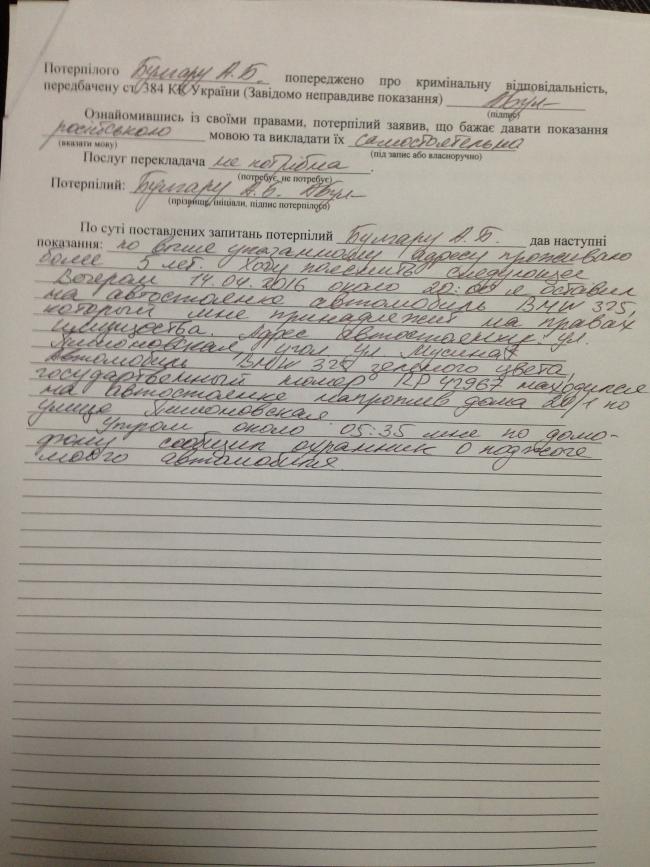 Потерпілого Булгару А.Б. попереджено про кримінальну відповідальність,
передбачену ст. 384 КК України (Завідомо неправдиве показання)
(підпис)
Ознайомившись із своїми правами, потерпілий заявив, що бажає давати показання
російською мовою та викладати їх самостоятельно
(вказати мову) (під запис або власноручно)
Послуг перекладача не потрібна .
(потребує, не потребує)
Потерпілий: Булгару А.Б.
(прізвище, ініціали, підпис потерпілого)
По суті поставлених запитань потерпілий Булгару А.Б. дав наступні
показання: по выше указанному адресу проживаю
более 5 лет. Хочу пояснить следующее
Вечером 14.04.2016 около 20:00 я оставил
на автостоянке автомобиль BMW 325,
который мне принадлежит на правах
имущества. Адрес автостоянки: ул.
угол ул.
Автомобиль BMW 325 зеленого цвета,
государственный номер находился
на автостоянке напротив дома 20/1 по
улице
Утром около 05:35 мне по домо-
фону сообщил охранник о поджоге
моего автомобиля